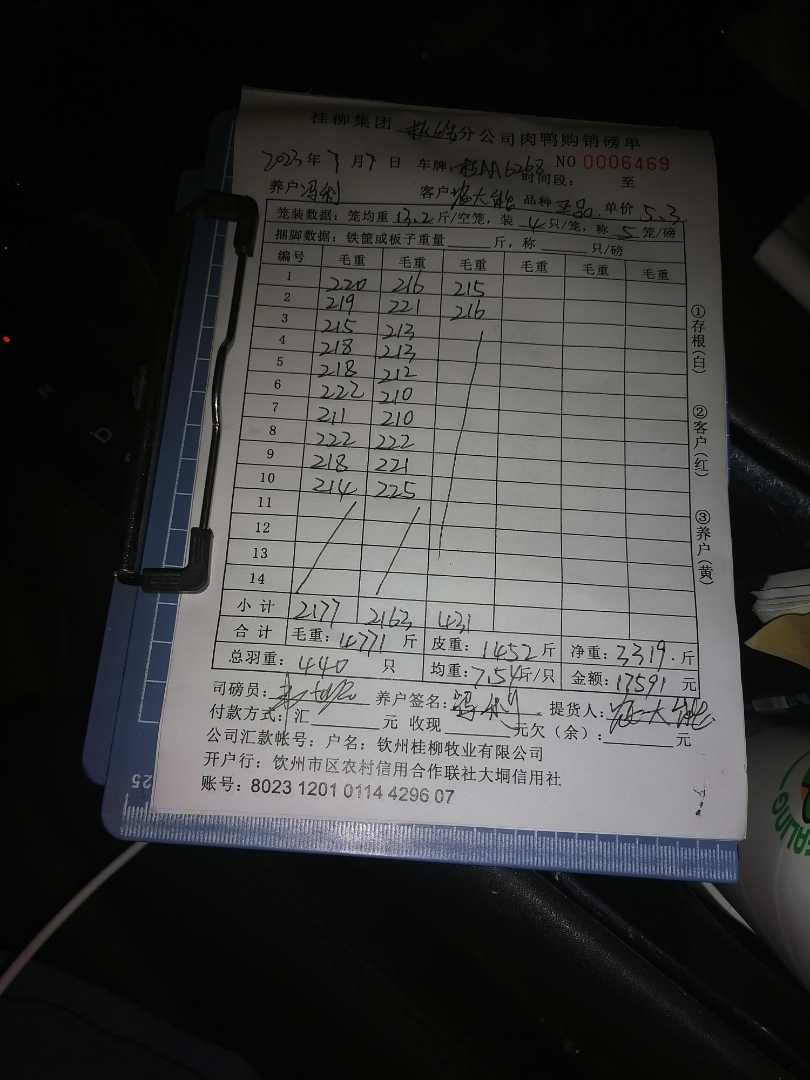 桂柳集团 分公司肉鸭购销磅单
2023年7月7日 车牌: AA6268 NO 0006469
时间段: 至
养户 冯利 客户 大能 品种 单价 5.3
笼装数据: 笼均重 13.2 斤/空笼, 装 4 只/笼, 称 5 笼/磅
捆脚数据: 铁筐或板子重量 斤, 称 只/磅
编号 毛重 毛重 毛重 毛重 毛重 毛重
1 220 216 215
2 219 221 216
3 215 213
4 218 213
5 218 212
6 222 210
7 211 210
8 222 222
9 218 221
10 214 225
11
12
13
14
小计 2177 2163 431
合计 毛重: 4771 斤 皮重: 1452 斤 净重: 3319. 斤
总羽重: 440 只 均重: 7.54 斤/只 金额: 17591 元
司磅员: 养户签名: 提货人: 大能
付款方式: 汇 元 收现 元欠(余): 元
公司汇款帐号: 户名: 钦州桂柳牧业有限公司
开户行: 钦州市区农村信用合作联社大垌信用社
账号: 8023 1201 0114 4296 07
①存根(白)
②客户(红)
③养户(黄)
25
EALING